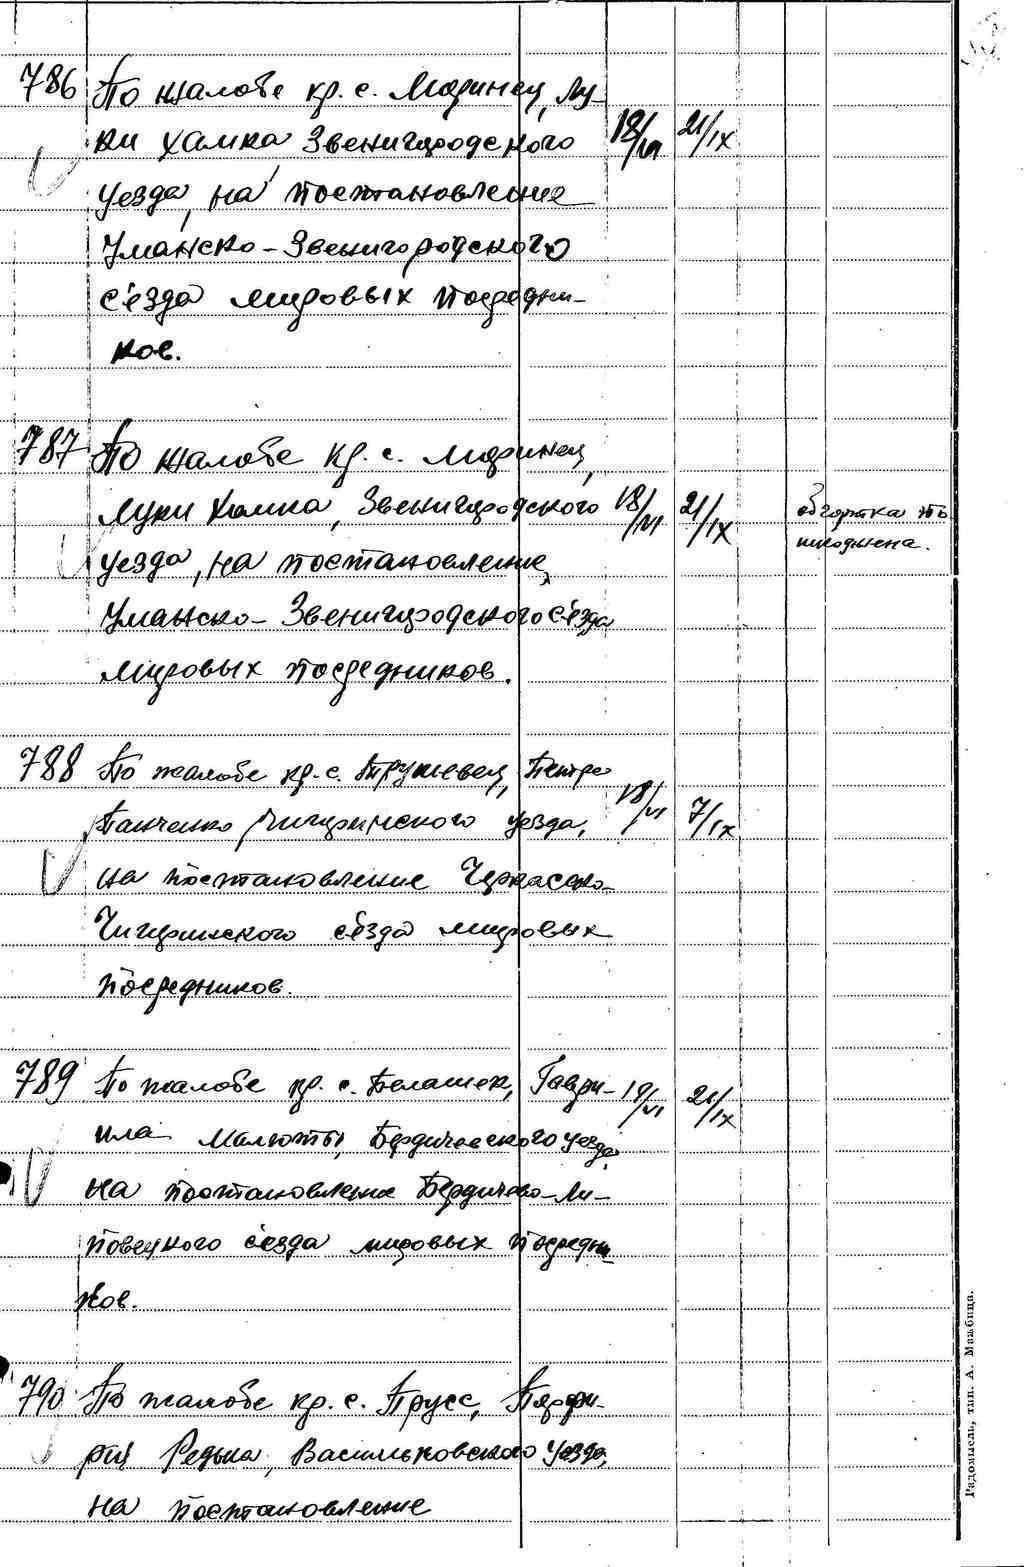 786 По жалобе кр. с. Моринец, Лу-
ки Хамка Звенигородского 18/VI 21/IX
уезда, на постановление
Уманско-Звенигородского
с'езда мировых посредни-
ков.
787 По жалобе кр. с. Моринец,
Луки Хамка, Звенигородского 18/VI 21/IX обгортка по
уезда, на постановление шкоджена.
Уманско-Звенигородского с'езда
мировых посредников.
788 По жалобе кр. с. Трушевец, Петра
Панченко, Чигиринского уезда, 18/VI 7/IX
на постановление Черкасско-
Чигиринского с'езда мировых
посредников.
789 По жалобе кр. с. Белашек, Гаври- 19/VI 21/IX
ила Малюты, Бердичевского уезда,
на постановление Бердичево-Ли-
повецкого с'езда мировых посредни-
ков.
790 По жалобе кр. с. Прусс, Парфи-
рия Редька, Васильковского уезда,
на постановление
Радомысль, тип. А. Манбица.